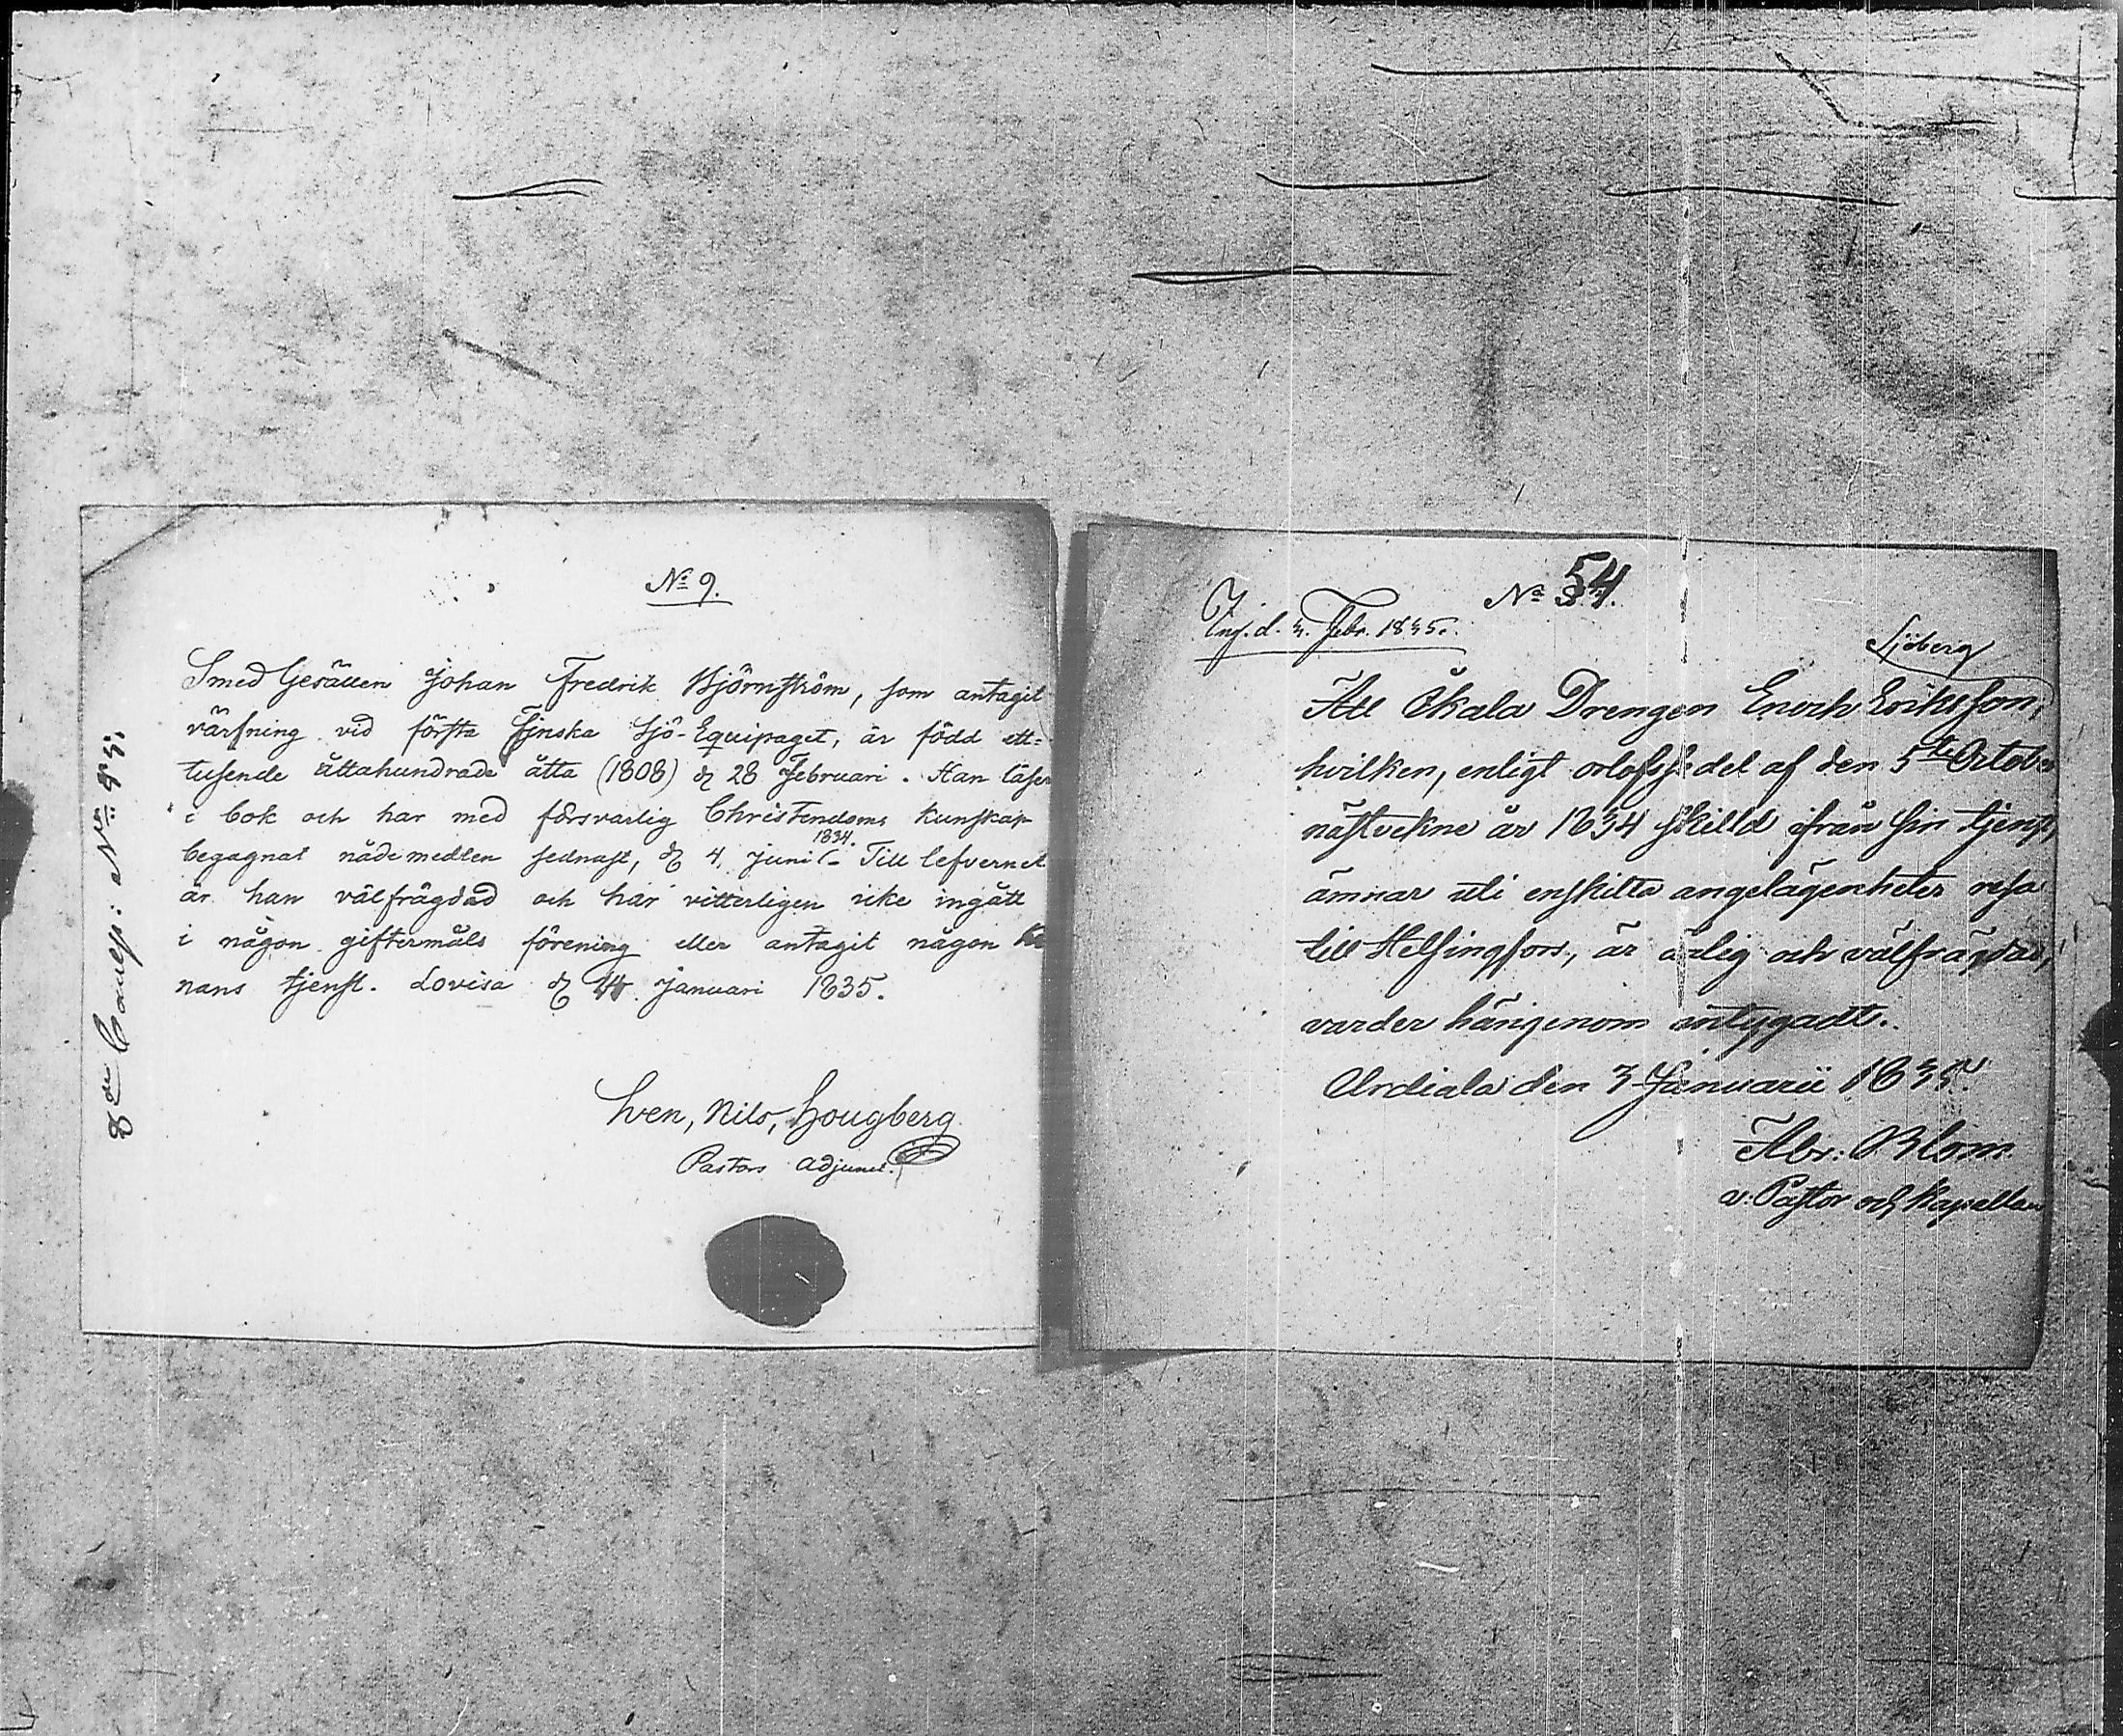 No 9.
Smed Gesällen Johan Fredrik Björnström, som antagit
värfning vid första Finska Sjö-Equipaget, är född ett=
tusende åttahundrade åtta (1808) d. 28 Februari. Han läser
i bok och har med försvarlig Christendoms kunskap
begagnat nådemedlen sednast, d. 4 Juni 1834. Till lefvernet
är han välfrägdad och har vitterligen icke ingått
i någon giftermåls förening eller antagit någon
nans tjenst. Lovisa d. Januari 1835.
Sven, Nils, Hougberg
Pastors Adjunct.
No: 45.
No 54.
d. 3. Febr. 1835.
Sjöberg
Att Ökala Drengen Enoch Eriksson,
hvilken, enligt orlofssedel af den 5te October
nästvekne år 1834 skilld ifrån sin tjenst,
ämnar uti enskilta angelägenheter resa
till Helsingfors, är ärlig och välfrägdad,
varder härigenom intygadt.
Urdiala den 3 Januarii 1835.
Abr: Blom
v: Pastor och Kapellan